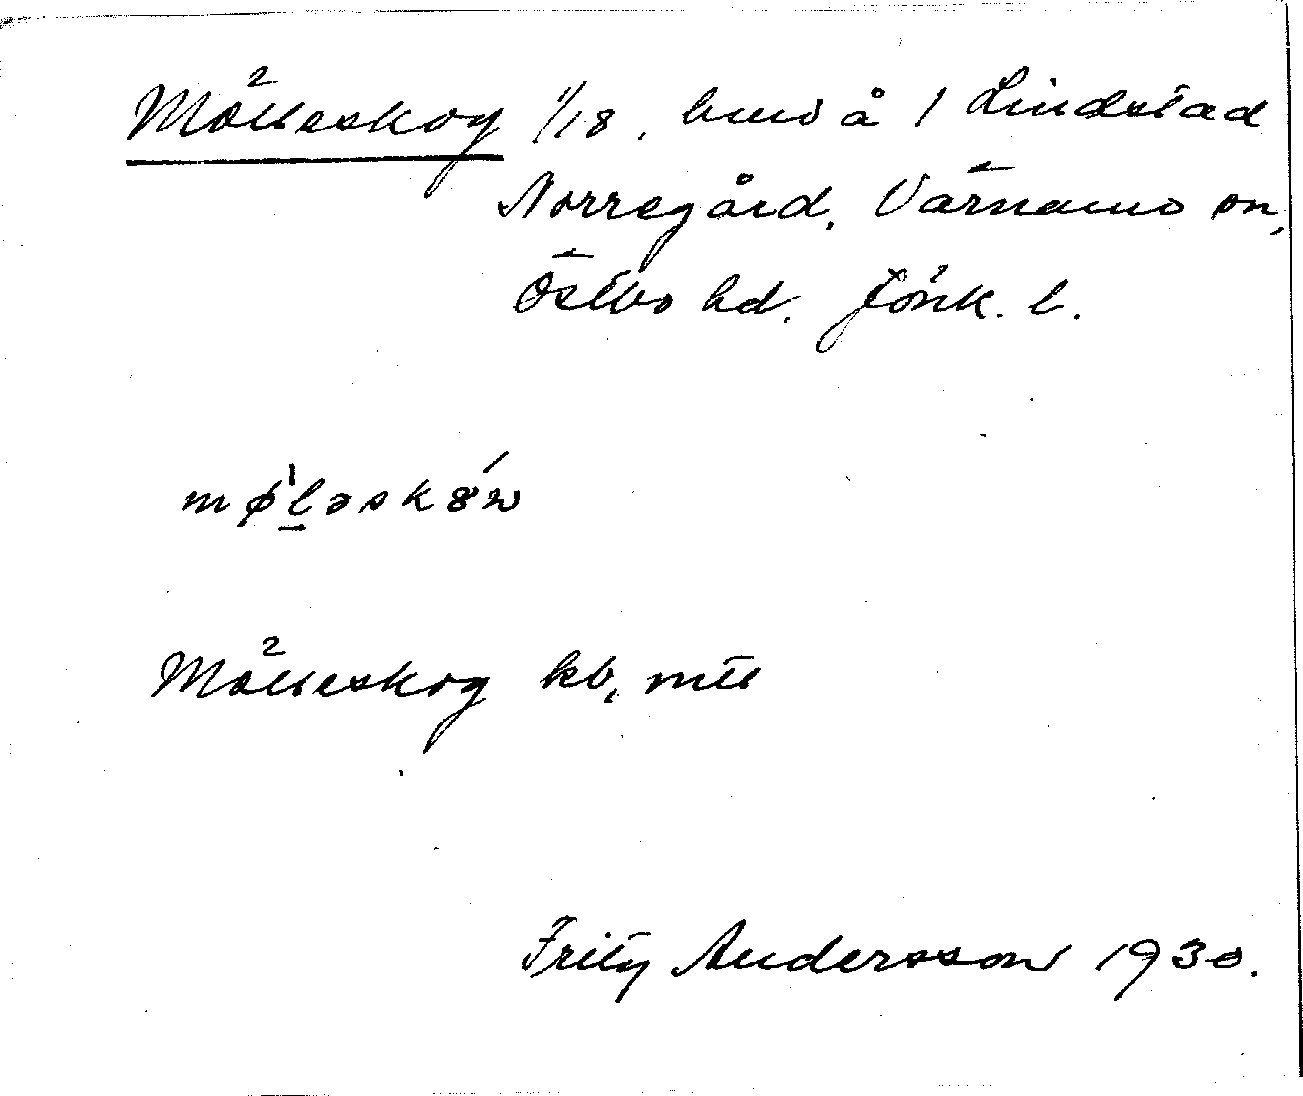 Mölleskog 1/18, hmd å 1 Lindstad
Norregård, Värnamo sn,
Östbo hd. Jönk. l.
mø'ləskóω
Mölleskog kb, mtl
Fritz Andersson 1930.